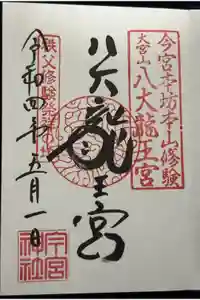 今宮本坊本山修験
大宮山
八大龍王宮
八大龍王宮
秩父修験発祥
令和四年五月一日
今宮神社